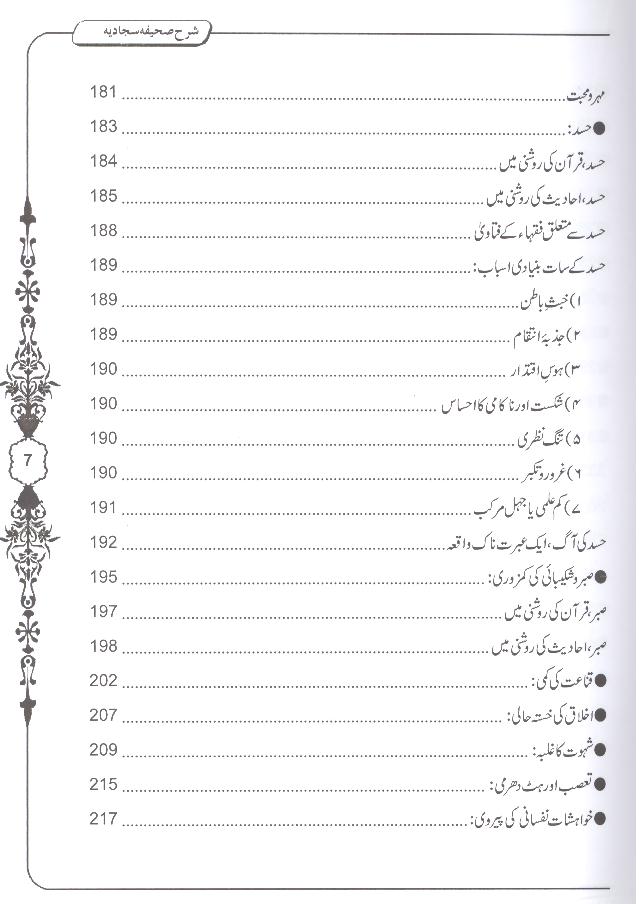 شرح صحیفہ سجادیہ
مہر و محبت ........ 181
● حسد: ........ 183
حسد، قرآن کی روشنی میں ........ 184
حسد، احادیث کی روشنی میں ........ 185
حسد سے متعلق فقہاء کے فتاویٰ ........ 188
حسد کے سات بنیادی اسباب: ........ 189
۱) خبثِ باطن ........ 189
۲) جذبۂ انتقام ........ 189
۳) ہوسِ اقتدار ........ 190
۴) شکست اور ناکامی کا احساس ........ 190
۵) تنگ نظری ........ 190
۶) غرور و تکبر ........ 190
۷) کم علمی یا جہل مرکب ........ 191
حسد کی آگ، ایک عبرت ناک واقعہ ........ 192
● صبر و شکیبائی کی کمزوری: ........ 195
صبر، قرآن کی روشنی میں ........ 197
صبر، احادیث کی روشنی میں ........ 198
● قناعت کی کمی: ........ 202
● اخلاق کی خستہ حالی: ........ 207
● شہوت کا غلبہ: ........ 209
● تعصب اور ہٹ دھرمی: ........ 215
● خواہشات نفسانی کی پیروی: ........ 217
7